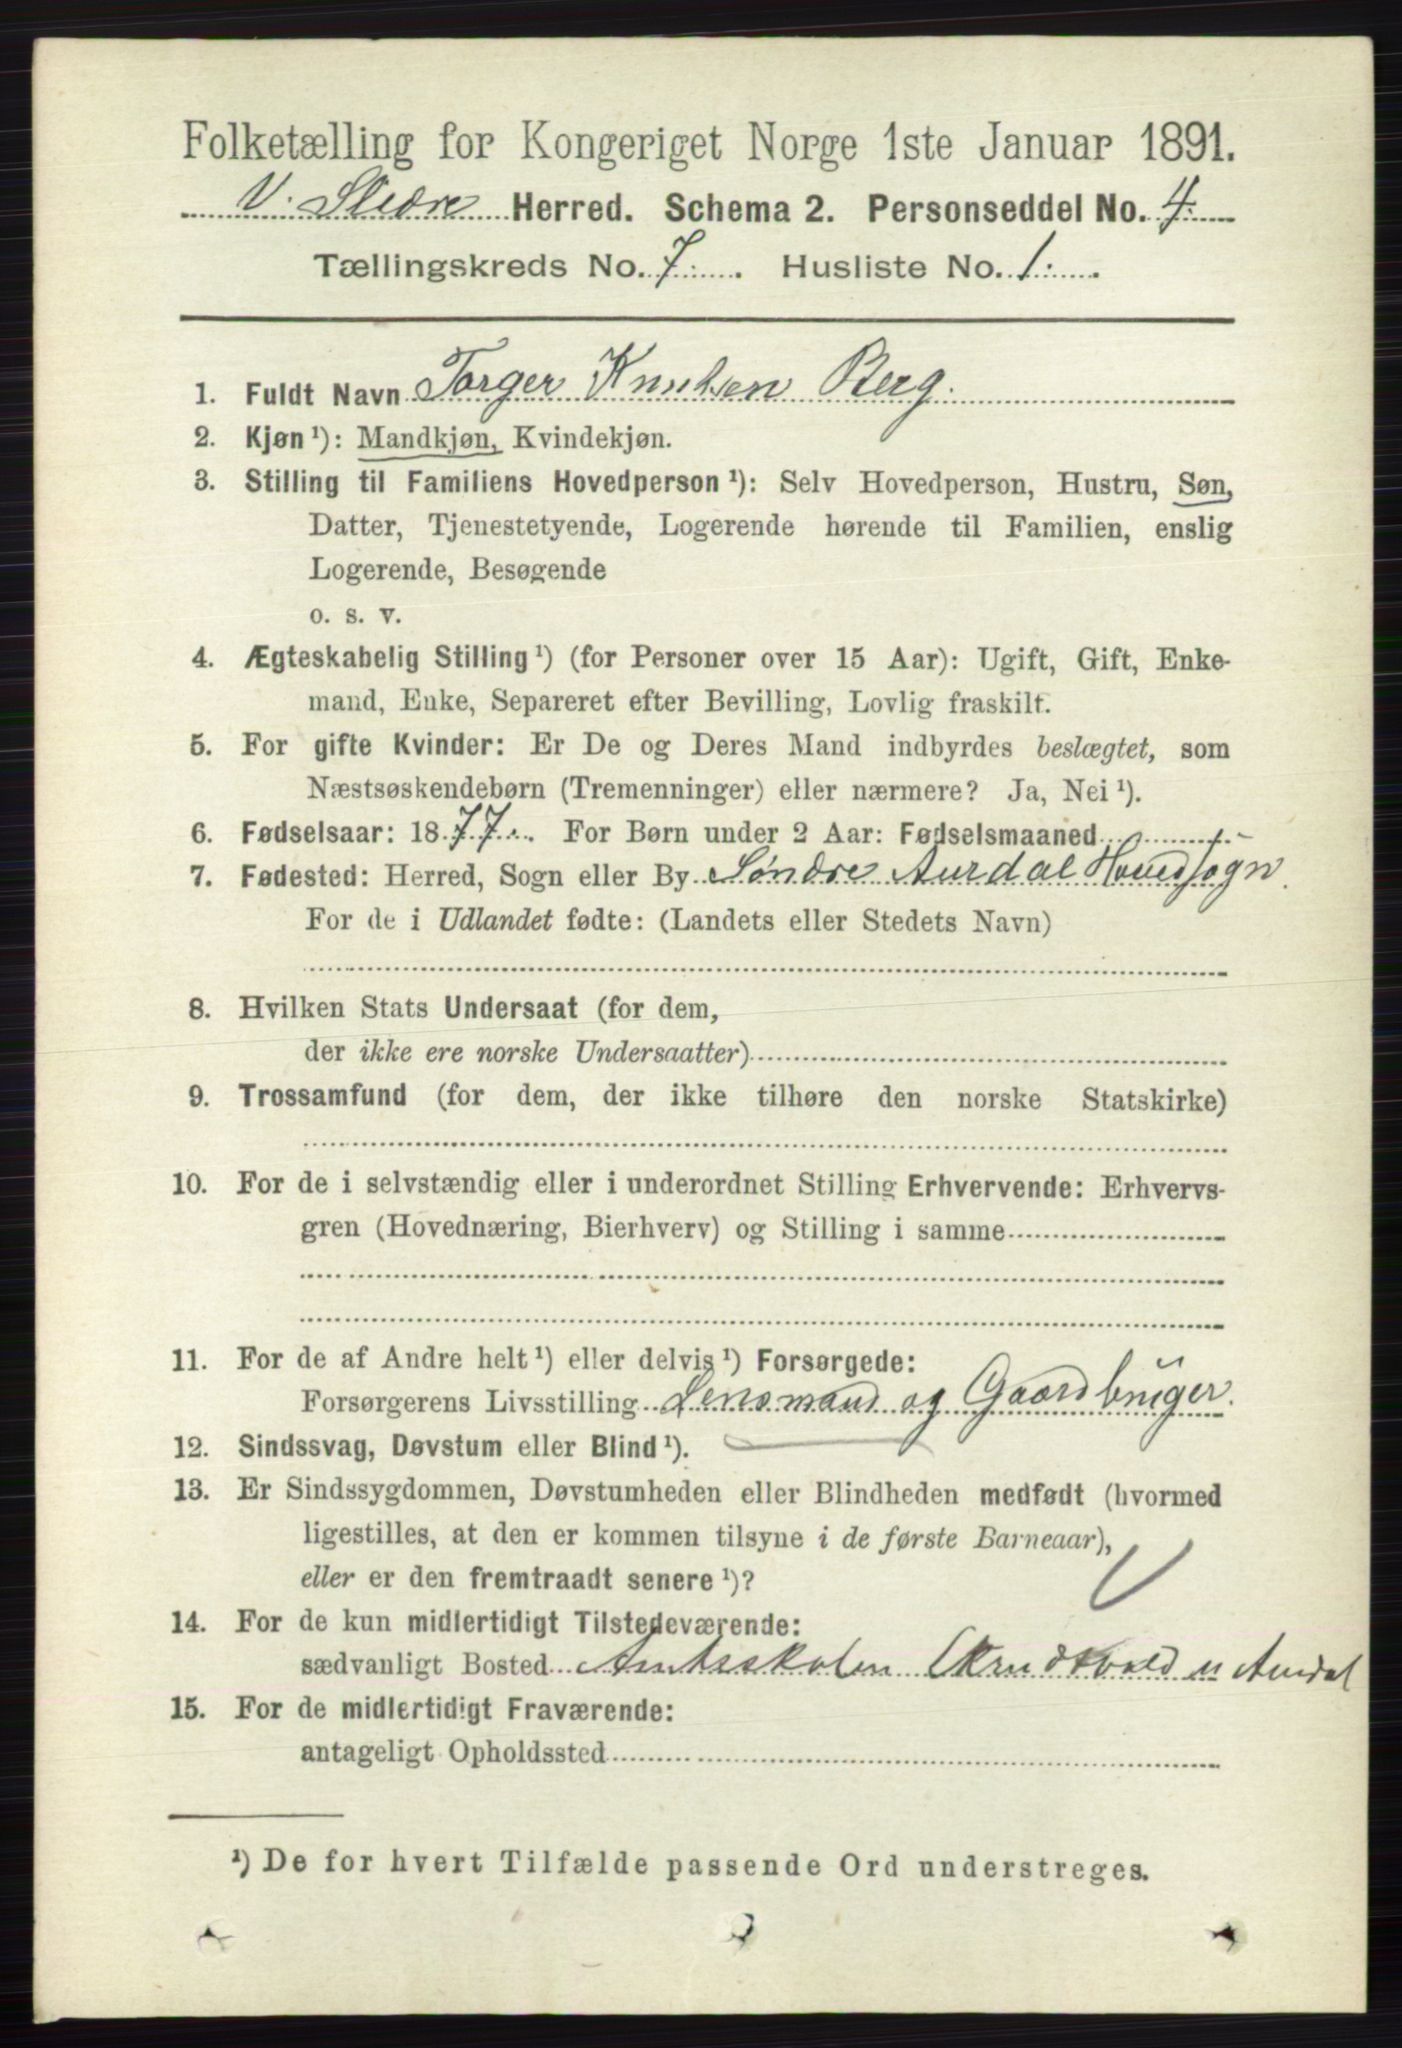 Folketælling for Kongeriget Norge 1ste Januar 1891.
V. Slidre Herred. Schema 2. Personseddel No. 4.
Tællingskreds No. 7. Husliste No. 1.
1. Fuldt Navn Torger Knutsen Berg.
2. Kjøn¹): Mandkjøn, Kvindekjøn.
3. Stilling til Familiens Hovedperson¹): Selv Hovedperson, Hustru, Søn,
Datter, Tjenestetyende, Logerende hørende til Familien, enslig
Logerende, Besøgende
o. s. v.
4. Ægteskabelig Stilling¹) (for Personer over 15 Aar): Ugift, Gift, Enke-
mand, Enke, Separeret efter Bevilling, Lovlig fraskilt.
5. For gifte Kvinder: Er De og Deres Mand indbyrdes beslægtet, som
Næstsøskendebørn (Tremenninger) eller nærmere? Ja, Nei¹).
6. Fødselsaar: 1877. For Børn under 2 Aar: Fødselsmaaned
7. Fødested: Herred, Sogn eller By Søndre Aurdal Hovedsogn.
For de i Udlandet fødte: (Landets eller Stedets Navn)
8. Hvilken Stats Undersaat (for dem,
der ikke ere norske Undersaatter)
9. Trossamfund (for dem, der ikke tilhøre den norske Statskirke)
10. For de i selvstændig eller i underordnet Stilling Erhvervende: Erhvervs-
gren (Hovednæring, Bierhverv) og Stilling i samme
11. For de af Andre helt¹) eller delvis¹) Forsørgede:
Forsørgerens Livsstilling Lensmand og Gaardbruger.
12. Sindssvag, Døvstum eller Blind¹).
13. Er Sindssygdommen, Døvstumheden eller Blindheden medfødt (hvormed
ligestilles, at den er kommen tilsyne i de første Barneaar),
eller er den fremtraadt senere¹)?
14. For de kun midlertidigt Tilstedeværende:
sædvanligt Bosted Amtsskolen Aurdal
15. For de midlertidigt Fraværende:
antageligt Opholdssted
¹) De for hvert Tilfælde passende Ord understreges.